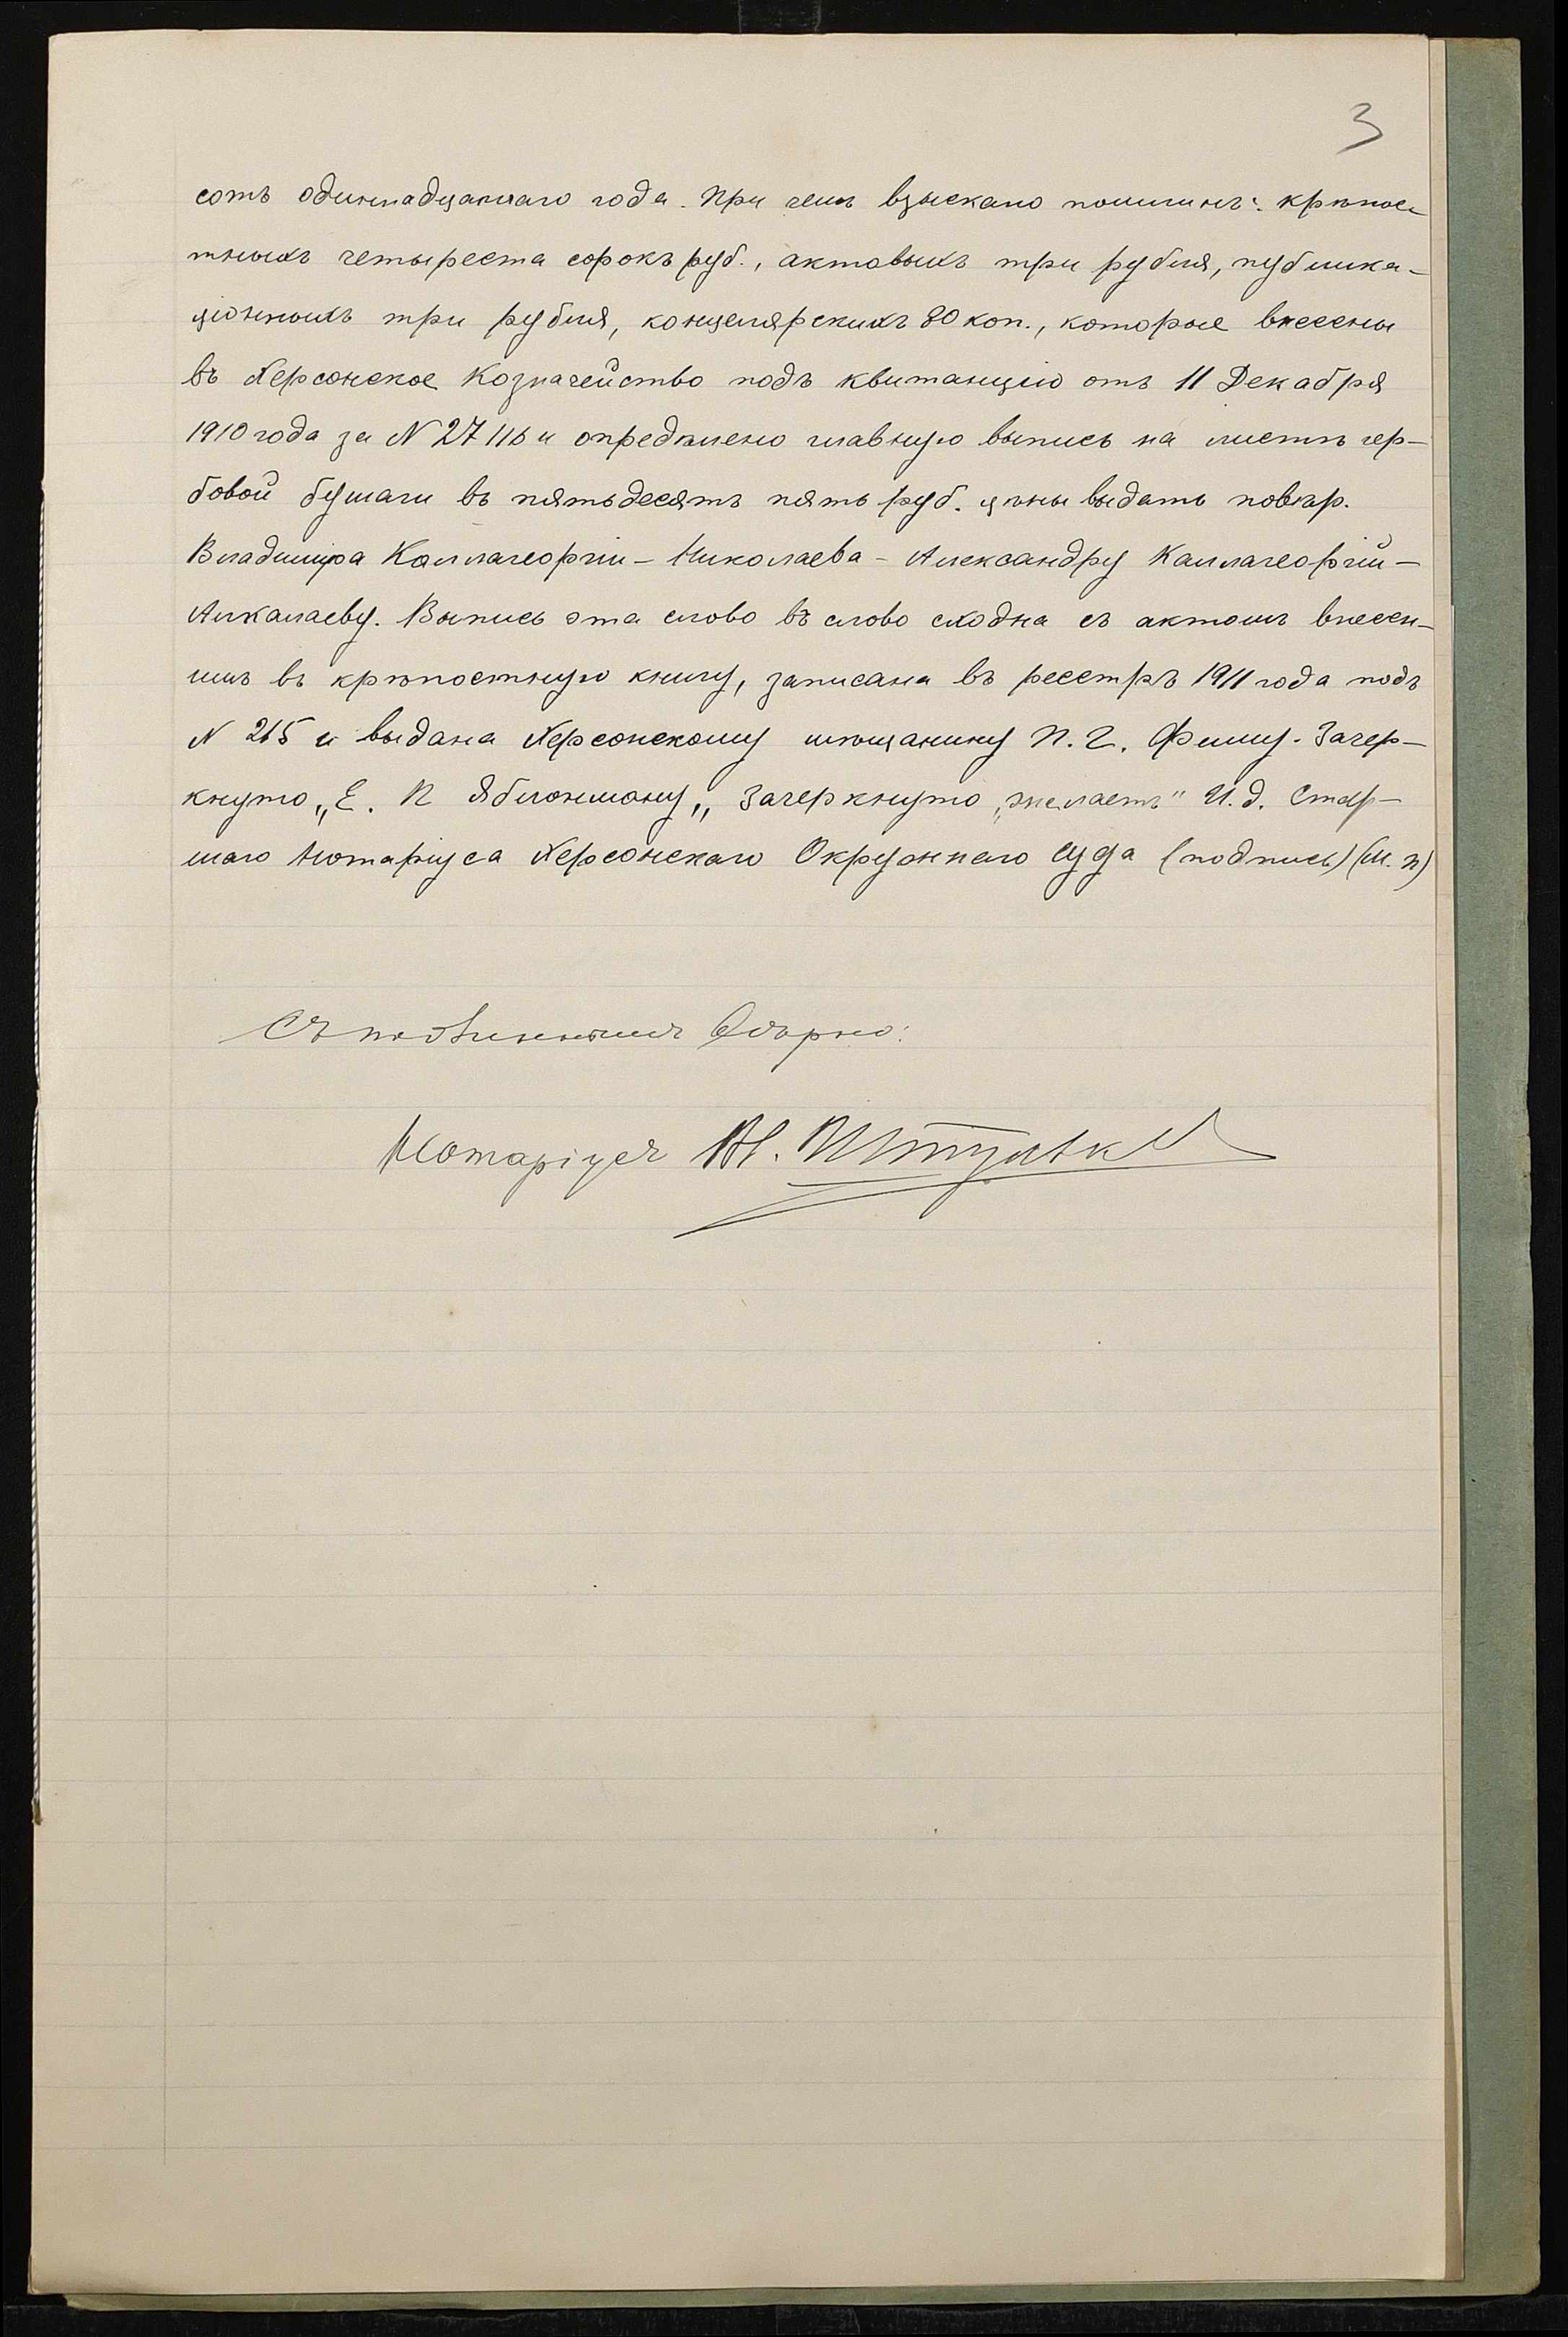 3
сотъ одиннадцатаго года. При чемъ взыскано пошлинъ: крѣпос-
тныхъ четыреста сорокъ руб., актовыхъ три рубля, публика-
ціонныхъ три рубля, канцелярскихъ 80 коп., которые внесены
въ Херсонское Казначейство подъ квитанцію отъ 11 Декабря
1910 года за N 27116 и опредѣлено главную выпись на листѣ гер-
бовой бумаги въ пятьдесятъ пять руб. цѣны выдать повѣр.
Владиміра Каллагеоргія - Николаева - Александру Каллагеоргій -
Алкалаеву. Выпись эта слово въ слово сходна съ актомъ внесен-
нымъ въ крѣпостную книгу, записана въ реестръ 1911 года подъ
N 265 и выдана Херсонскому мѣщанину П. Г. Зачер-
кнуто „Е. П Яблонману„ Зачеркнуто „желаетъ" И. д. Стар-
шаго Нотаріуса Херсонскаго Окружнаго Суда (подпись) (М. П)
Съ подлиннымъ вѣрно:
Нотаріусъ